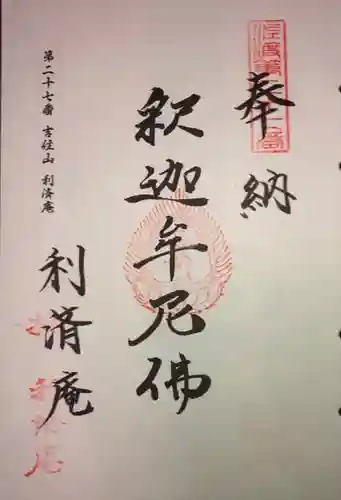 奉納
釈迦牟尼佛
利済庵
第二十七番 吉住山 利済庵